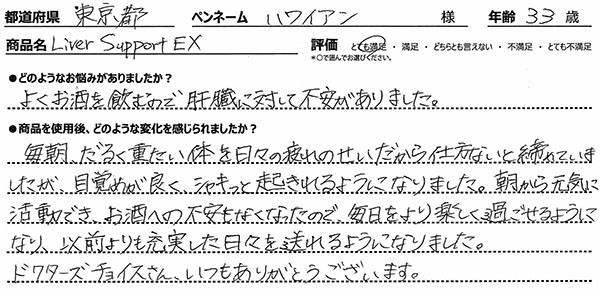 都道府県 東京都 ペンネーム ハワイアン 様 年齢 33 歳
商品名 Liver Support EX 評価 とても満足 ・ 満足 ・ どちらとも言えない ・ 不満足 ・ とても不満足
*○で囲んでお選びください。
●どのようなお悩みがありましたか？
よくお酒を飲むので肝臓に対して不安がありました。
●商品を使用後、どのような変化を感じられましたか？
毎朝、だるく重たい体を日々の疲れのせいだから仕方ないと締めていま
したが、目覚めが良く、シャキっと起きれるようになりました。朝から元気に
活動でき、お酒への不安もなくなったので、毎日をより楽しく過ごせるように
なり、以前よりも充実した日々を送れるようになりました。
ドクターズチョイスさん、いつもありがとうございます。